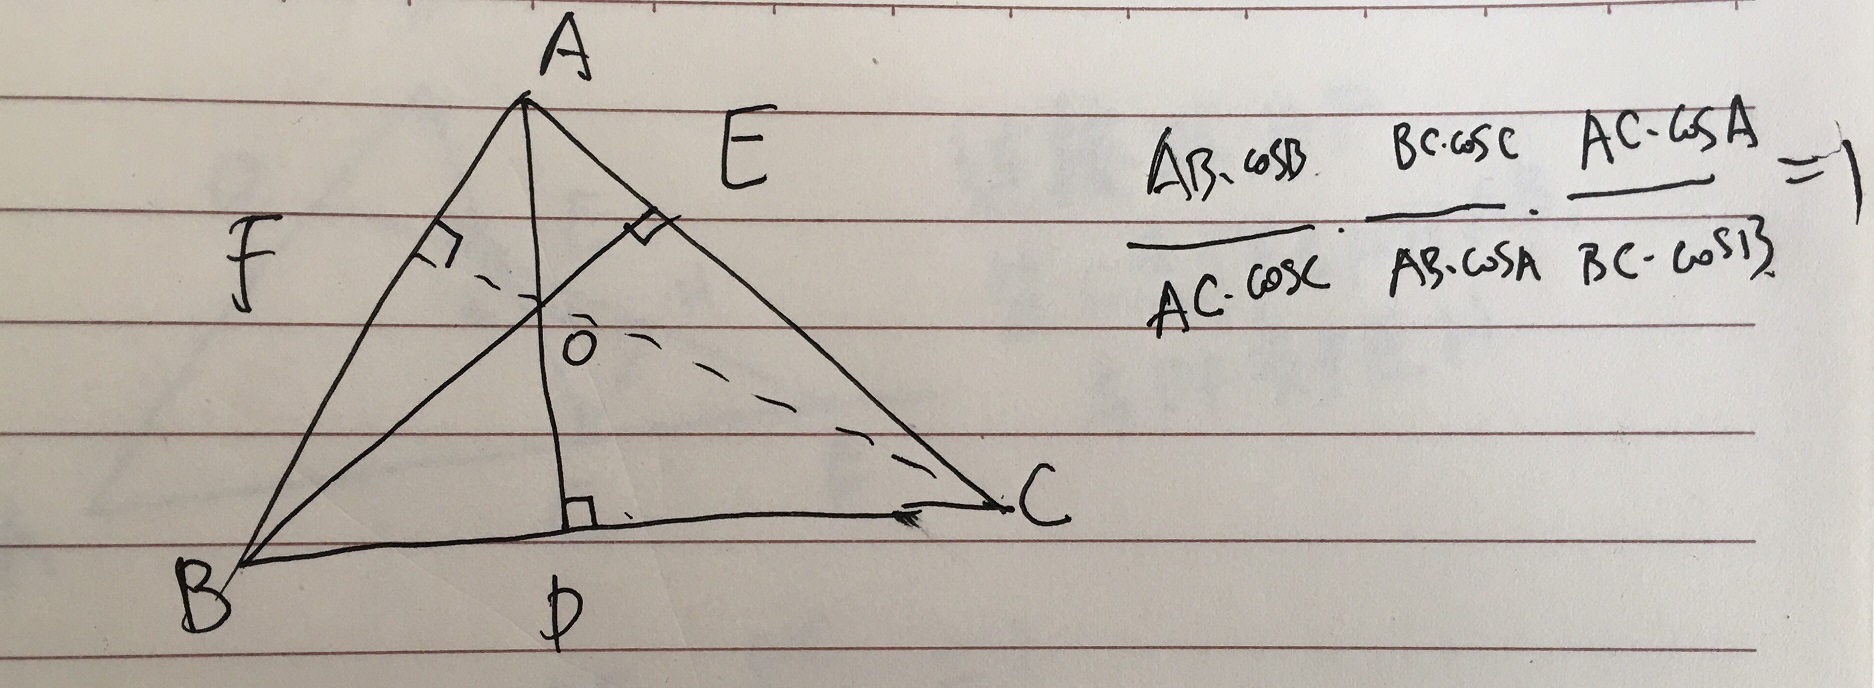 A
E
F
O
B
D
C
AB·cosB BC·cosC AC·cosA
AC·cosC · AB·cosA · BC·cosB = 1